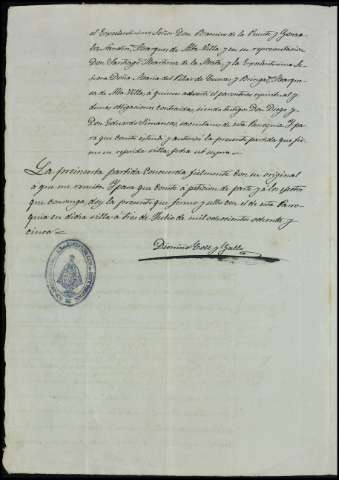 el Excelentisimo Señor Don Ramiro de la Puente y Gonza-
lez Nandin, Marques de Alta Villa, y en su representacion
Don Santiago Martinez de la Mata, y la Excelentisima Se-
ñora Doña Maria del Pilar de Cuevas y Bringas, Marque-
sa de Alta Villa, á quienes advertí el parentesco espiritual y
demás obligaciones contraidas, siendo testigos Don Diego y
Don Eduardo Simancas, sacristanes de esta Parroquia. Y pa-
ra que conste estendí y autorizé la presente partida que fir-
mo en referida villa, fecha ut supra
La preinserta partida concuerda fielmente con su original
á que me remito. Y para que conste á peticion de parte y á los efectos
que convenga, doy la presente que firmo y sello con el de esta Parro-
quia en dicha villa á tres de Julio de mil ochocientos ochenta y
cinco
Dionisio y Gallo